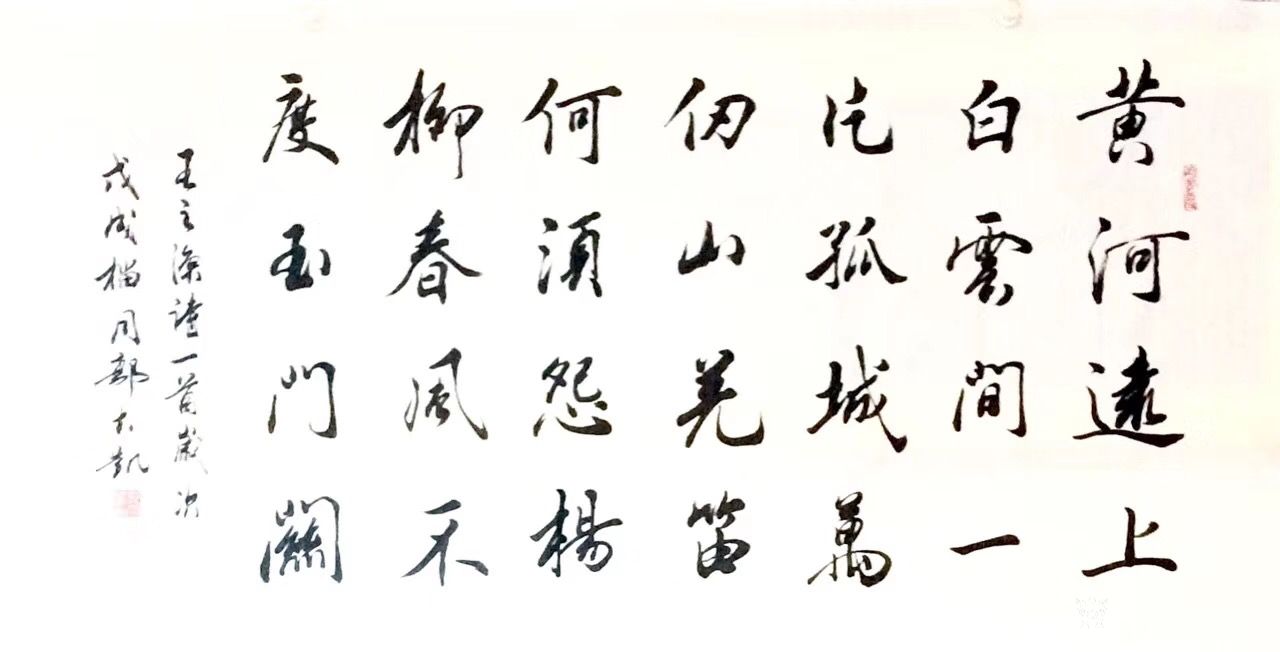 黃河遠上
白雲間一
片孤城萬
仞山羌笛
何須怨楊
柳春風不
度玉門關
王之渙詩一首歲次
戊戌 月 大凱